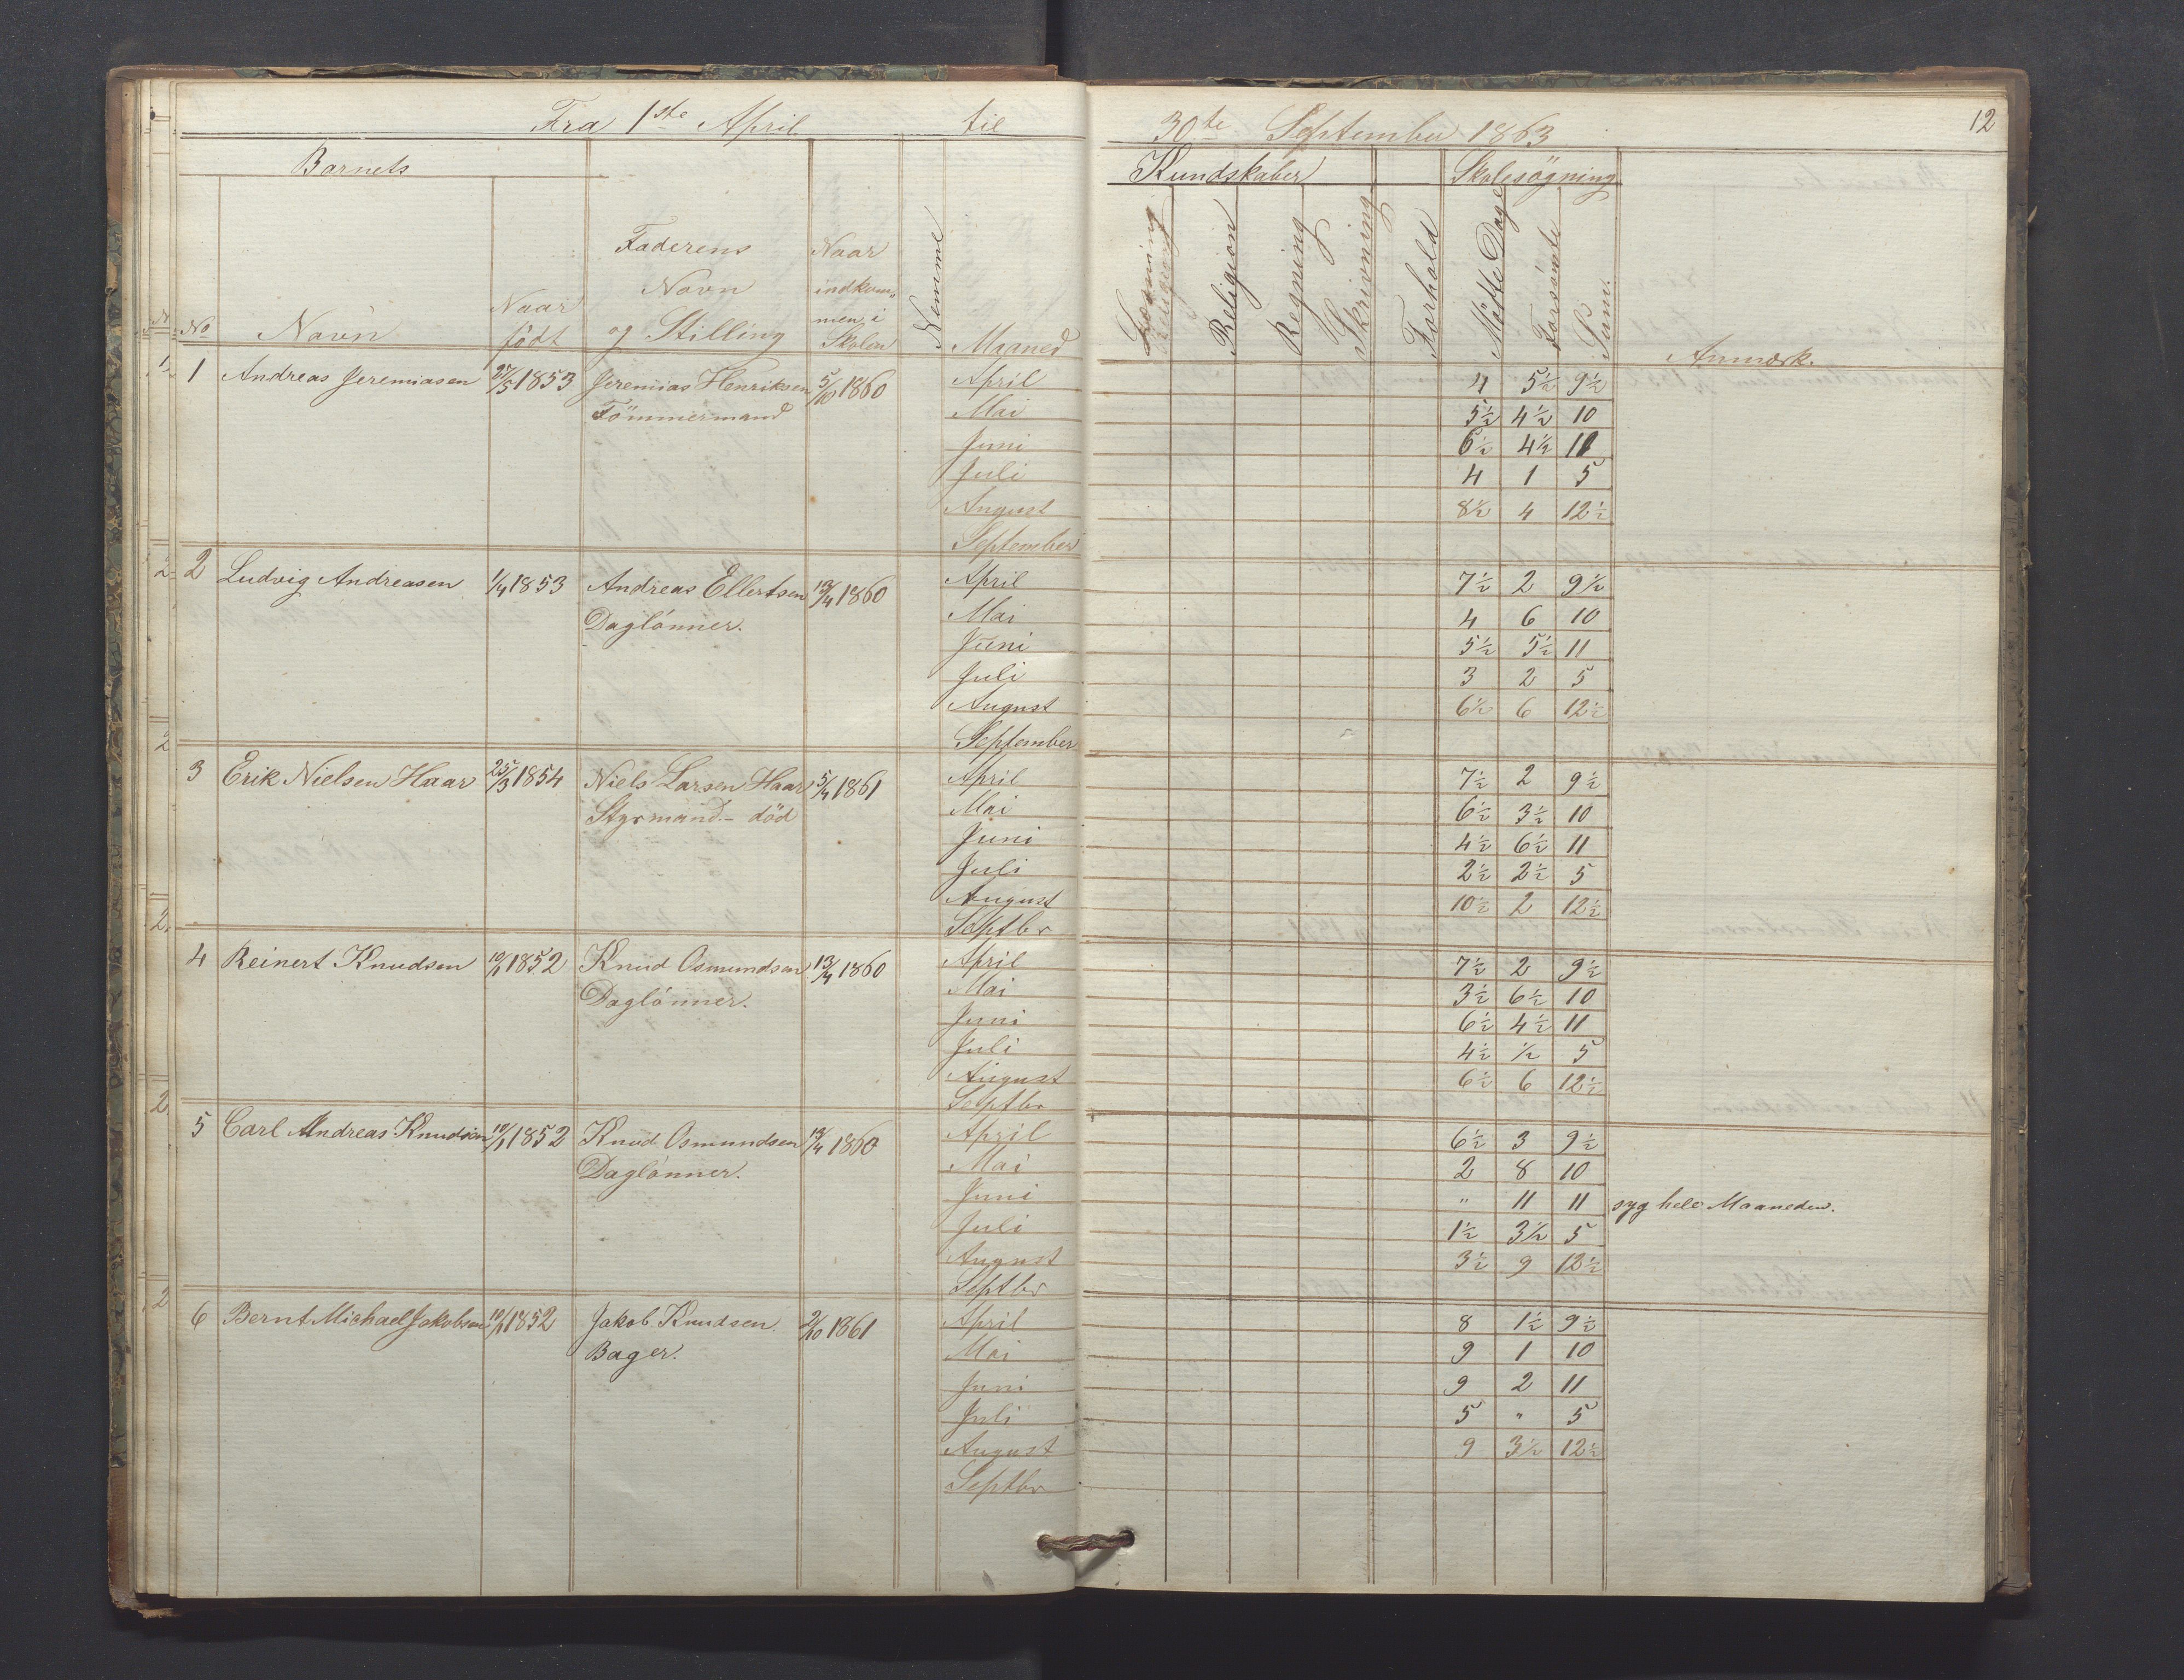 Fra 1ste April til 30te September 1863
12
Barnets
Kundskaber
Skolesögning
No
Navn
Naar født
Faderens Navn og Stilling
Naar indkommen i Skolen
Nemme
Maaned
Religion
Regning
Skrivning
Forhold
Mötte Dage
Forsömte
Sum.
Anmærk.
1 Andreas Jeremiasen 27/5 1853 Jeremias Henriksen 5/10 1860 April 4 5½ 9½
Tömmermand Mai 5½ 4½ 10
Juni 6½ 4½ 11
Juli 4 1 5
August 8½ 4 12½
September
2 Ludvig Andreasen 1/4 1853 Andreas Ellertsen 13/4 1860 April 7½ 2 9½
Daglönner. Mai 4 6 10
Juni 5½ 5½ 11
Juli 3 2 5
August 6½ 6 12½
September
3 Erik Nielsen Haar 25/3 1854 Niels Larsen Haar 5/4 1861 April 7½ 2 9½
Styrmand.- död Mai 6½ 3½ 10
Juni 4½ 6½ 11
Juli 2½ 2½ 5
August 10½ 2 12½
Septbr
4 Reinert Knudsen 10/1 1852 Knud Osmundsen 13/4 1860 April 7½ 2 9½
Daglönner. Mai 3½ 6½ 10
Juni 6½ 4½ 11
Juli 4½ ½ 5
August 6½ 6 12½
Septbr
5 Carl Andreas Knudsen 10/1 1852 Knud Osmundsen 13/4 1860 April 6½ 3 9½
Daglönner. Mai 2 8 10
Juni " 11 11 syg hele Maaneden.
Juli 1½ 3½ 5
August 3½ 9 12½
Septbr
6 Bernt Michael Jakobsen 10/1 1852 Jakob Knudsen 2/10 1861 April 8 1½ 9½
Bager. Mai 9 1 10
Juni 9 2 11
Juli 5 " 5
August 9 3½ 12½
Septbr